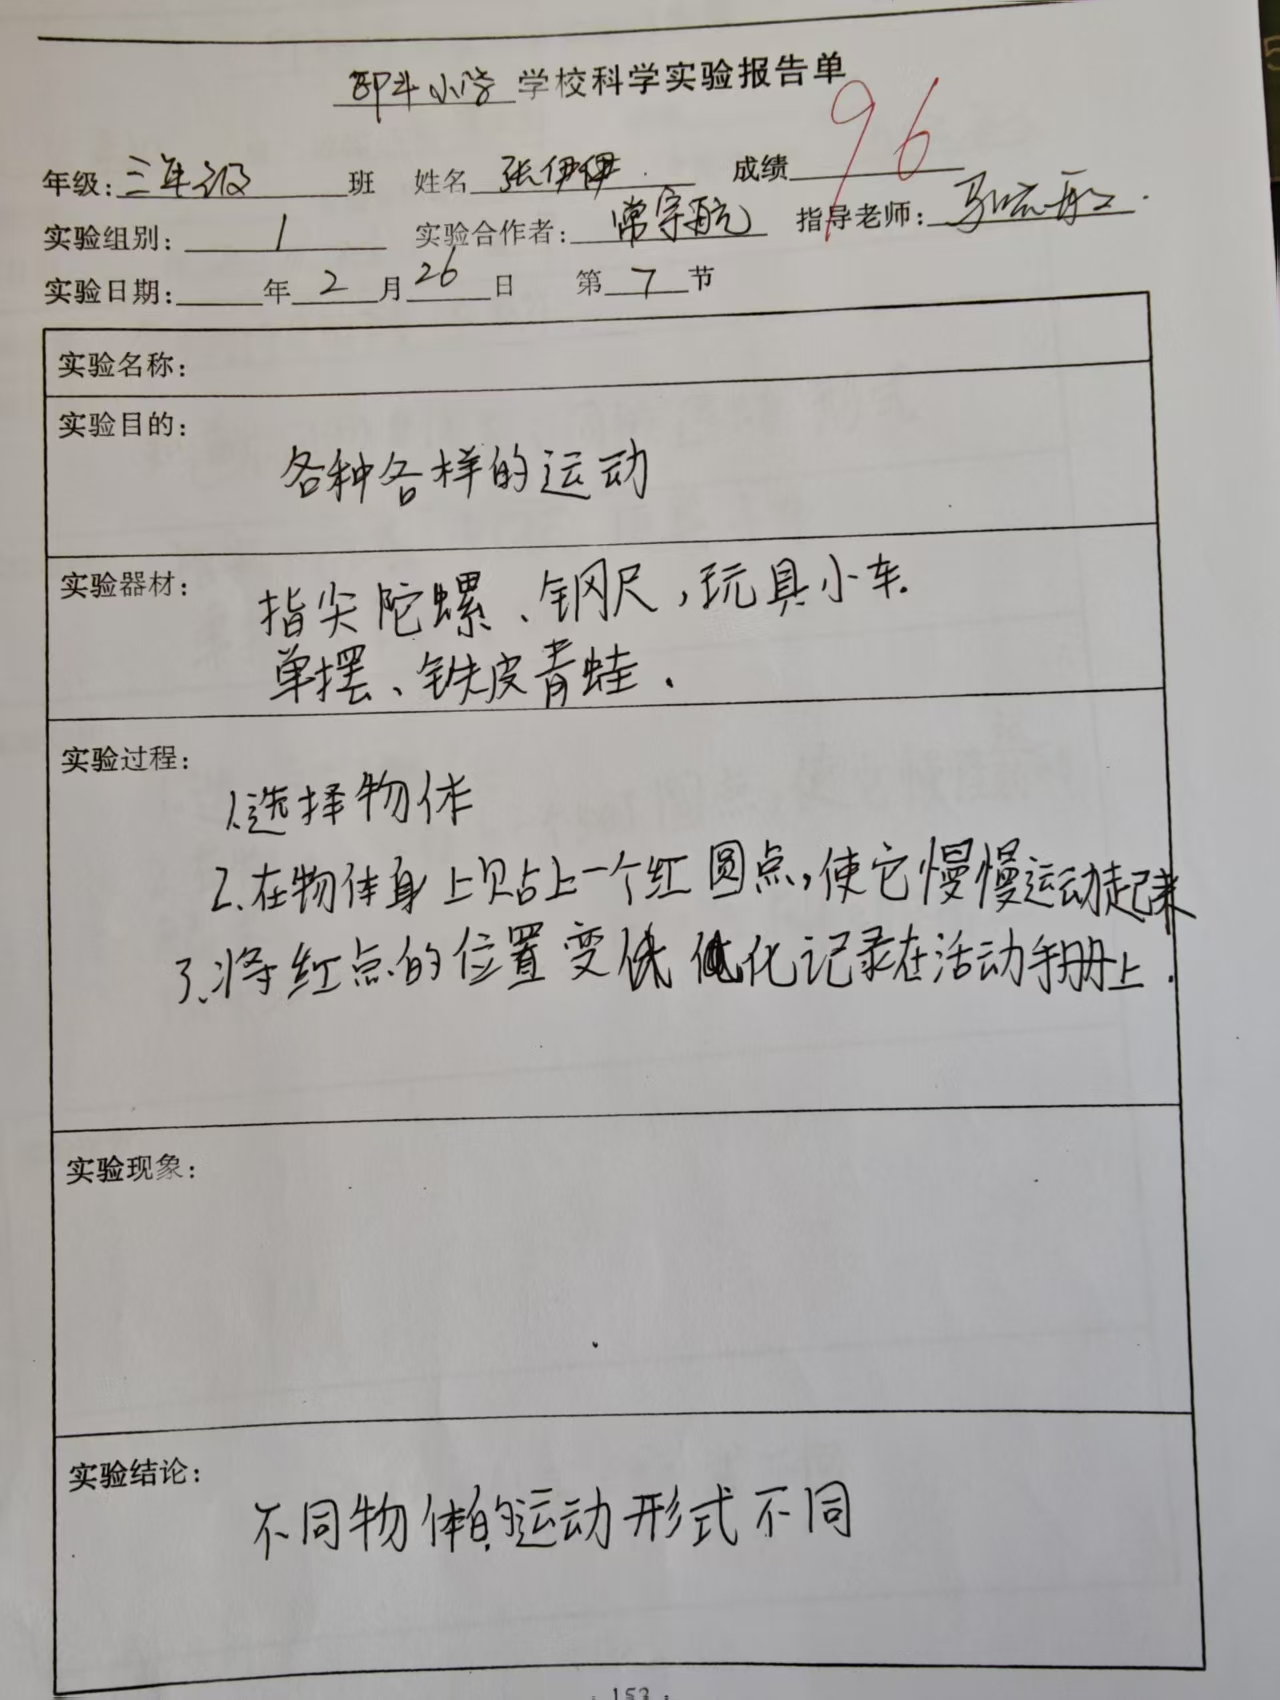 小学 学校科学实验报告单
年级:三年级 班 姓名 张伊伊 成绩 96
实验组别: 1 实验合作者: 常宇航 指导老师:
实验日期: 年 2 月 26 日 第 7 节
实验名称:
实验目的:
各种各样的运动
实验器材:
指尖陀螺、钢尺,玩具小车.
单摆、铁皮青蛙.
实验过程:
1.选择物体
2.在物体身上贴上一个红圆点,使它慢慢运动起来
3.将红点的位置变化记录在活动手册上.
实验现象:
实验结论:
不同物体的运动形式不同
· 153 ·